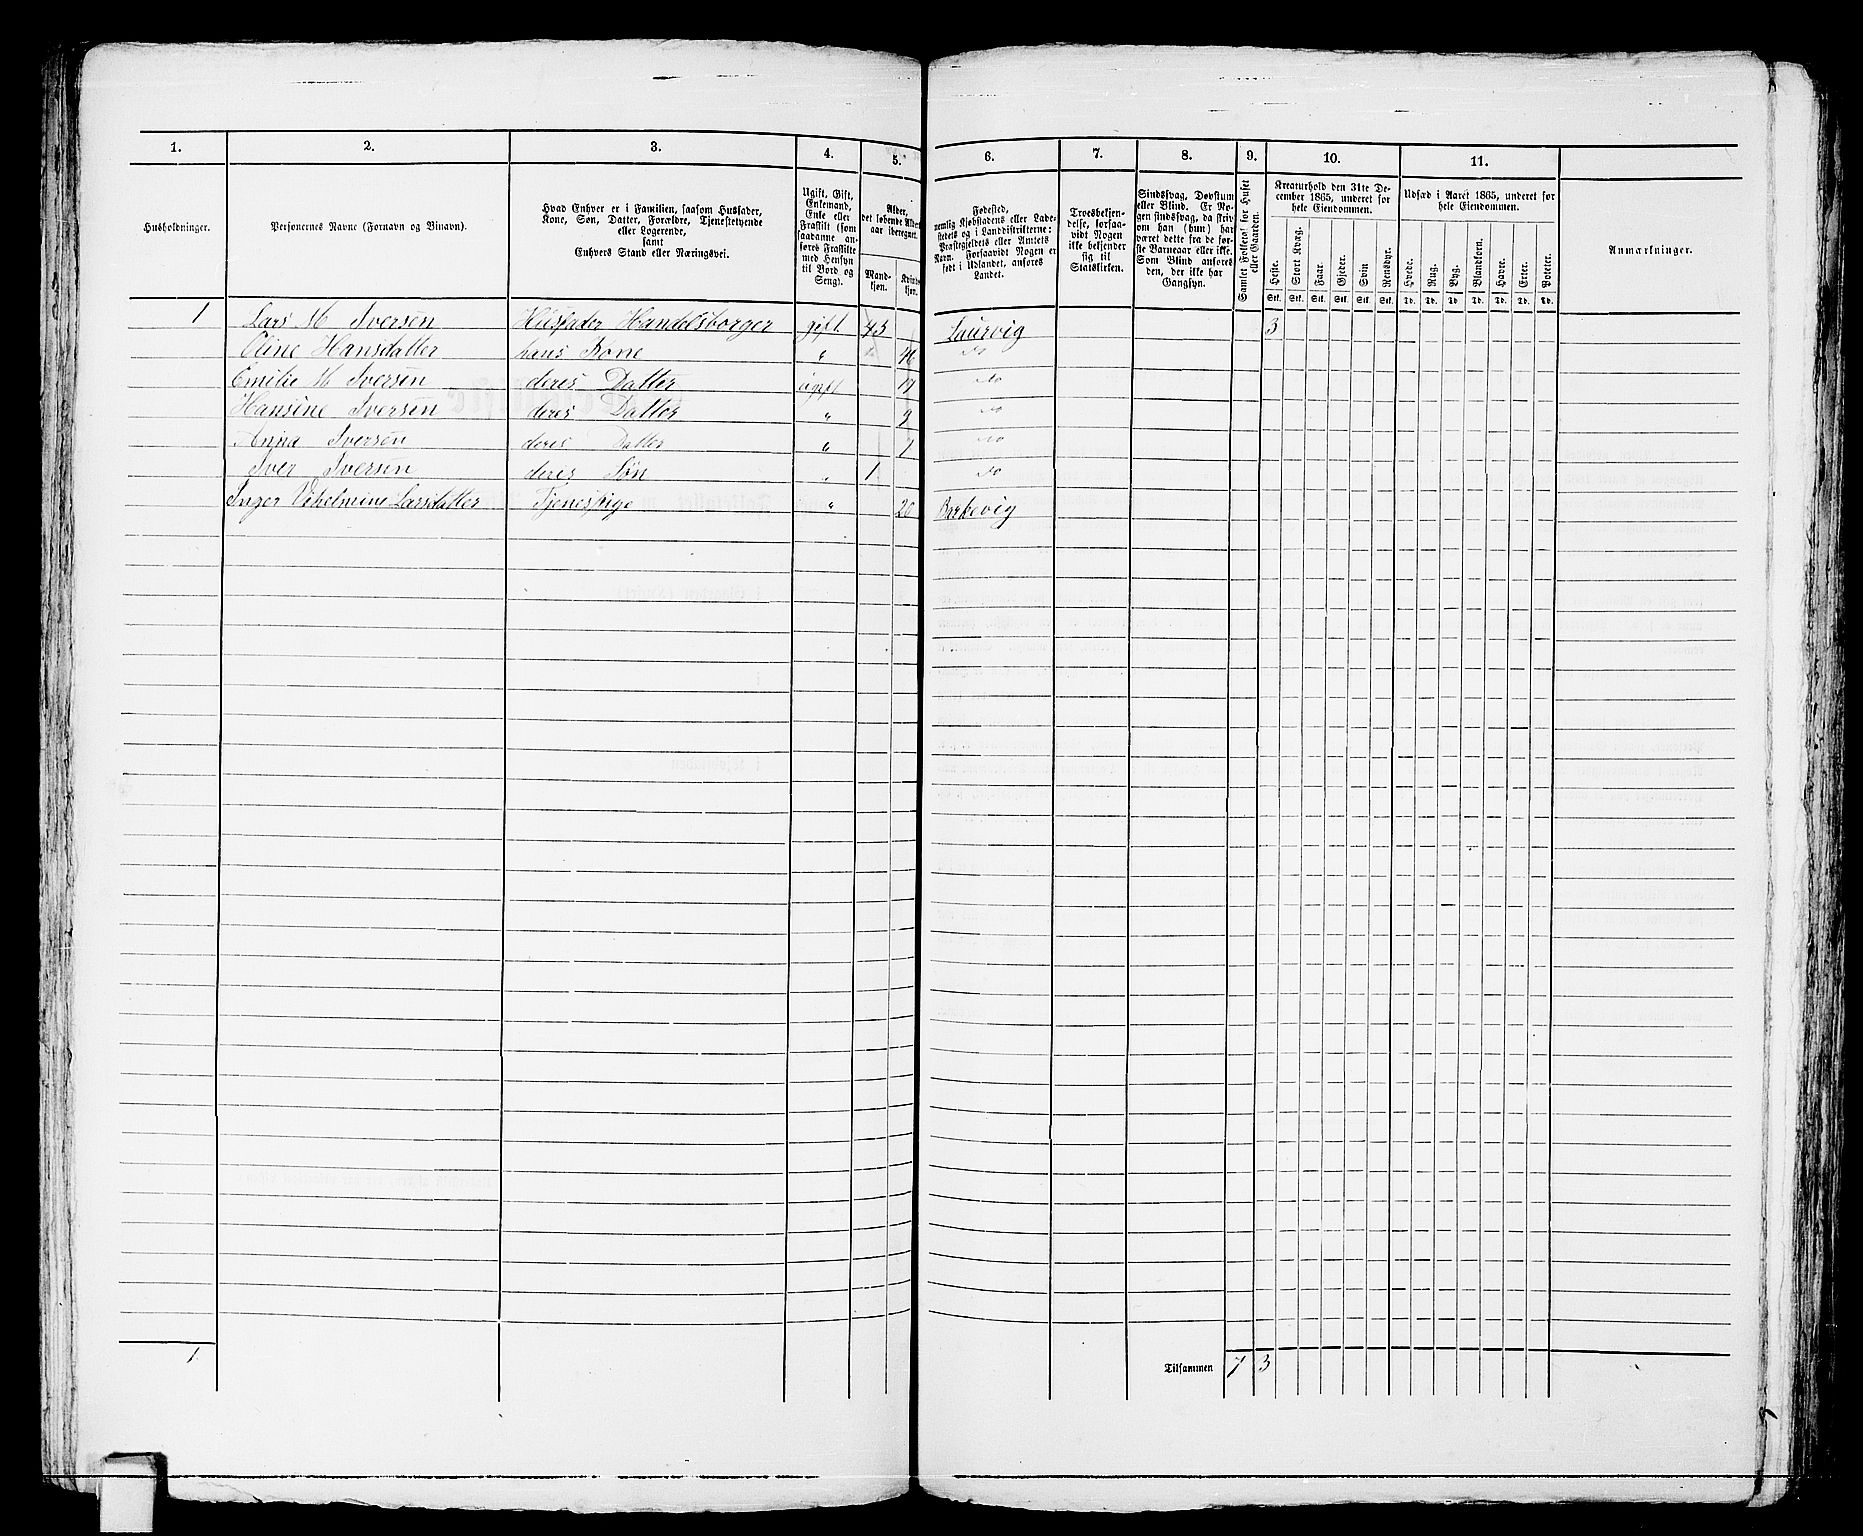 1. 2. 3. 4. 5. 6. 7. 8. 9. 10. 11.
Husholdninger.
Personernes Navne (Fornavn og Binavn).
Hvad Enhver er i Familien, saasom Husfader,
Kone, Søn, Datter, Forældre, Tjenestetyende
eller Logerende,
samt
Enhvers Stand eller Næringsvei.
Ugift, Gift,
Enkemand,
Enke eller
Fraskilt (som
saadanne an-
føres Fraskilte
med Hensyn
til Bord og
Seng).
Alder,
det løbende Alders-
aar iberegnet.
Mand-
kjøn.
Kvinde-
kjøn.
Fødested,
nemlig Kjøbstadens eller Lade-
stedets og i Landdistrikterne:
Præstegjeldets eller Amtets
Navn. Forsaavidt Nogen er
født i Udlandet, anføres
Landet.
Troesbekjen-
delse, forsaa-
vidt Nogen
ikke bekjender
sig til
Statskirken.
Sindssvag, Døvstum
eller Blind. Er No-
gen sindssvag, da skriv
om han (hun) har
været dette fra de før-
ste Barneaar eller ikke.
Som Blind anføres
den, der ikke har
Gangsyn.
Samlet Folketal for Huset
eller Gaarden.
Kreaturhold den 31te De-
cember 1865, underet for
hele Eiendommen.
Heste. Stort Kvæg. Faar. Gjeder. Svin Rensdyr.
Stk. Stk. Stk. Stk. Stk. Stk.
Udsæd i Aaret 1865, underet for
hele Eiendommen.
Hvede. Rug. Byg. Blandkorn. Havre. Erter. Poteter.
Td. Td. Td. Td. Td. Td. Td.
Anmærkninger.
1 Lars M Iversen Husfader Handelsborger gift 45 Laurvig 3
Oline Hansdatter hans Kone " 46 do
Emilie M Iversen deres Datter ugift 17 do
Hansine Iversen deres Datter " 9 do
Anna Iversen deres Datter " 7 do
Iver Iversen deres Søn " 1 do
Inger Vilhelmine Larsdatter Tjenestpige " 20 Barkevig
1. Tilsammen 7 3